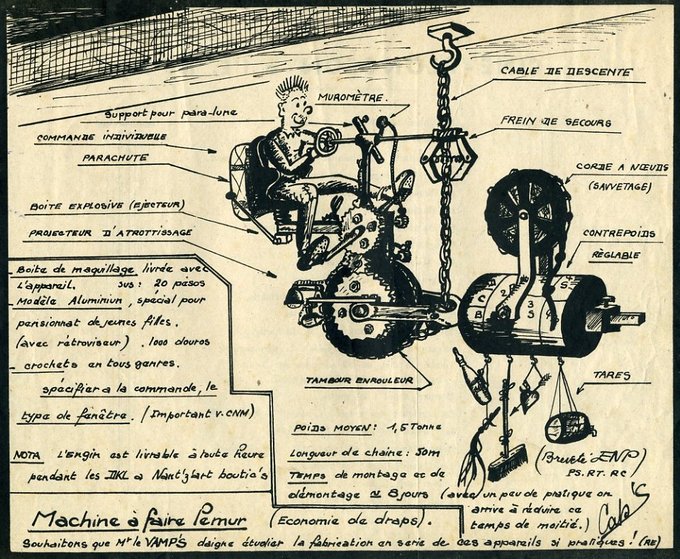 CABLE DE DESCENTE
MUROMÈTRE.
Support pour para-lune
FREIN DE SECOURS
COMMANDE INDIVIDUELLE
PARACHUTE
CORDE A NŒUDS
(SAUVETAGE)
BOITE EXPLOSIVE (EJECTEUR)
PROJECTEUR D'ATROTTISSAGE
CONTREPOIDS
RÈGLABLE
Boite de maquillage livrée avec
L'appareil. sus: 20 pesos
Modèle Aluminium, spécial pour
pensionnat de jeunes filles.
(avec rétroviseur). 1000 douros
crochets en tous genres.
spécifier a la commande, le
type de fenêtre. (Important v. CNM)
NOTA L'engin est livrable à toute heure
pendant les IIKL à Nant'zlart boutia's
TAMBOUR ENROULEUR
TARES
POIDS MOYEN: 1,5 Tonne
Longueur de chaine: 50m
TEMPS de montage et de
démontage 8 jours (avec un peu de pratique on
arrive à réduire ce
temps de moitié.)
(Breveté ENP)
PS. RT. RC
Cab's
Machine à faire lemur (Economie de draps).
Souhaitons que Mr le VAMP'S daigne étudier la fabrication en serie de ces appareils si pratiques! (RE)